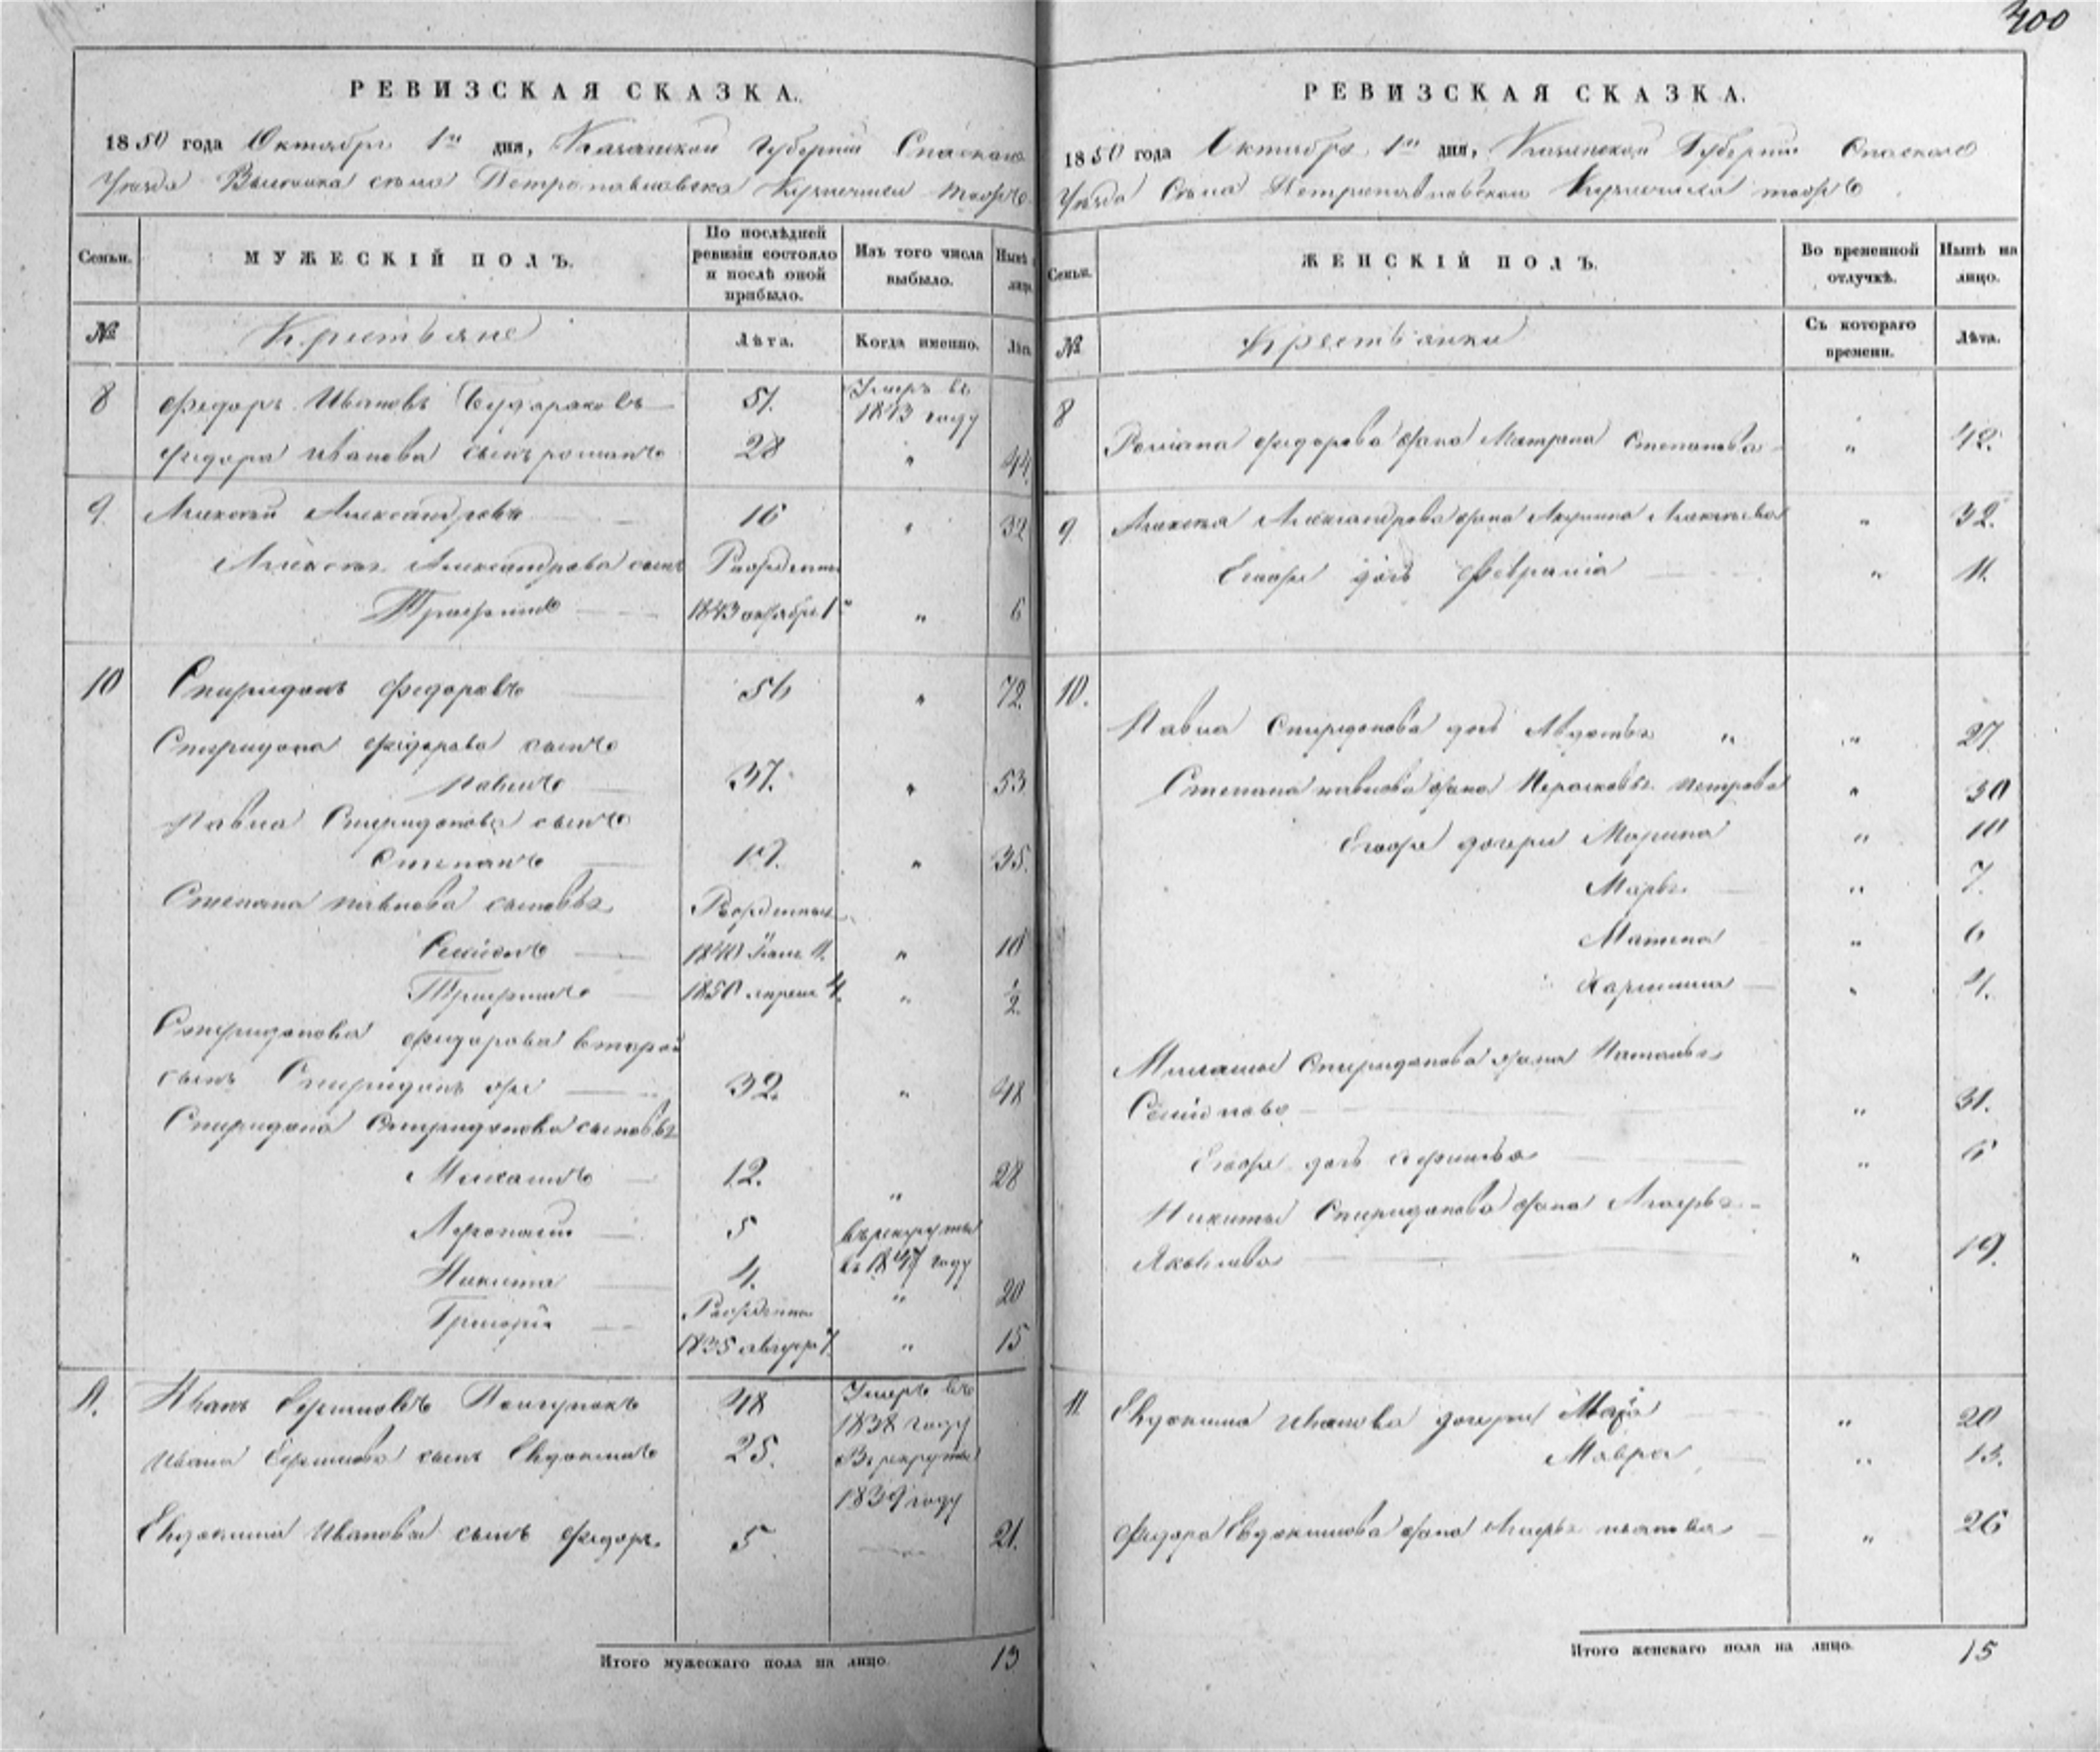 400
РЕВИЗСКАЯ СКАЗКА.
1850 года Октября 1го дня, Казанской Губернiи Спаскаго
Уѣзда села Петропавловска Кузнечиха тожъ
Семьи.
МУЖЕСКIЙ ПОЛЪ.
По послѣдней ревизiи состояло и послѣ оной прибыло.
Изъ того числа выбыло.
Нынѣ на лицо.
№
Крестьяне
Лѣта.
Когда именно.
Лѣта
8 Федоръ Ивановъ 51. Умеръ въ 1843 году
Федора Иванова сынъ романъ 28 " 44
9. Алексѣй Александровъ 16 " 32
Алексѣя Александрова сынъ Рожденъ
Трофимъ 1843 октября 1 " 6
10 Спиридонъ Федоровъ 56 " 72.
Спиридона Федорова сынъ
павелъ 37. " 53
Павла Спиридонова сынъ
Степанъ 19. " 35.
Степана павлова сыновья Рожденные
Семiонъ 1840 " 10
Трофимъ 1850 апреля 4. " 1/2
Спиридонова Федорова второй
сынъ Спиридонъ же 32. " 48
Спиридона Спиридонова сыновья
Михаилъ 12. " 28
Афонасiй 5 въ рекруты въ 1847 году
Никита 4. " 20
Григорiй Рожденъ
1835 " 15
11. Иванъ 48 Умеръ въ 1838 году
Ивана сынъ Евдокимъ 25. В рекруты 1839 году
Евдокима Иванова сынъ Федоръ 5 21.
Итого мужескаго пола на лицо. 13
РЕВИЗСКАЯ СКАЗКА.
1850 года Октября 1го дня, Казанской Губернiи Спаскаго
Уѣзда Села Петропавловскаго Кузнечиха тожъ
Семьи.
ЖЕНСКIЙ ПОЛЪ.
Во временной отлучкѣ.
Нынѣ на лицо.
№
Крестьянки
Съ котораго времени.
Лѣта.
8
Романа Федорова жена Матрена Степанова " 42.
9 Алексѣя Александрова жена Акулина " 32.
Егоже дочь Феврапiа " 11.
10.
Павла Спиридонова дочь Авдотья " " 27
Степана павлова жена Парасковья петрова " 30
Егоже дочери Марина " 10
Марья " 7.
Матрена " 6
" 4.
Михаилы Спиридонова жена Наталья
Семiонова " 31.
Егоже дочь " 6
Никиты Спиридонова жена
Яковлева " 19.
11 Евдокима Иванова дочери " 20
Мавра " 13.
Федора Евдокимова жена " 26
Итого женскаго пола на лицо. 15